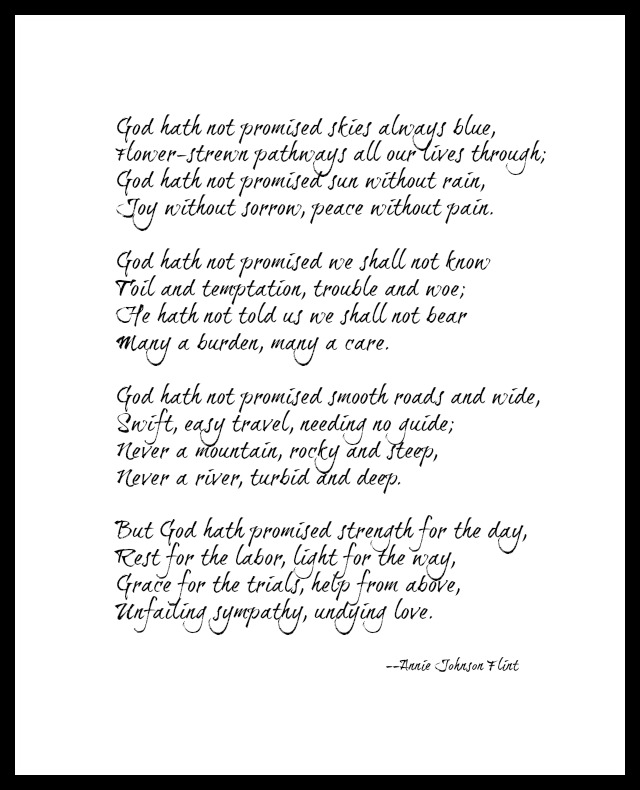 God hath not promised skies always blue,
Flower-strewn pathways all our lives through;
God hath not promised sun without rain,
Joy without sorrow, peace without pain.

God hath not promised we shall not know
Toil and temptation, trouble and woe;
He hath not told us we shall not bear
Many a burden, many a care.

God hath not promised smooth roads and wide,
Swift, easy travel, needing no guide;
Never a mountain, rocky and steep,
Never a river, turbid and deep.

But God hath promised strength for the day,
Rest for the labor, light for the way,
Grace for the trials, help from above,
Unfailing sympathy, undying love.

--Annie Johnson Flint